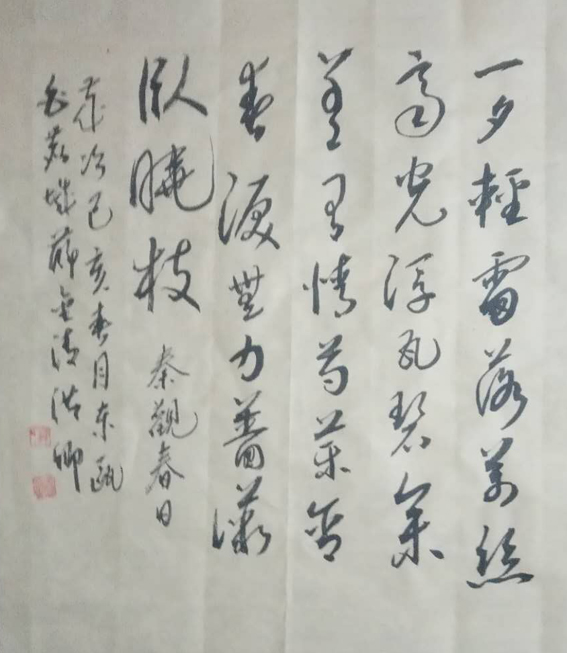 一夕輕雷落萬絲
霽光浮瓦碧參
差有情芍藥含
春淚無力薔薇
臥曉枝 秦觀春日
歲次己亥春月東甌
白鹿城薛